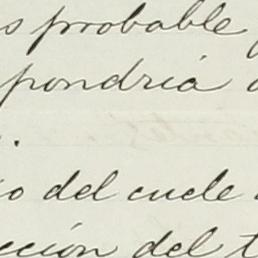 s probable
pondría
.
o del cucle
cción del t